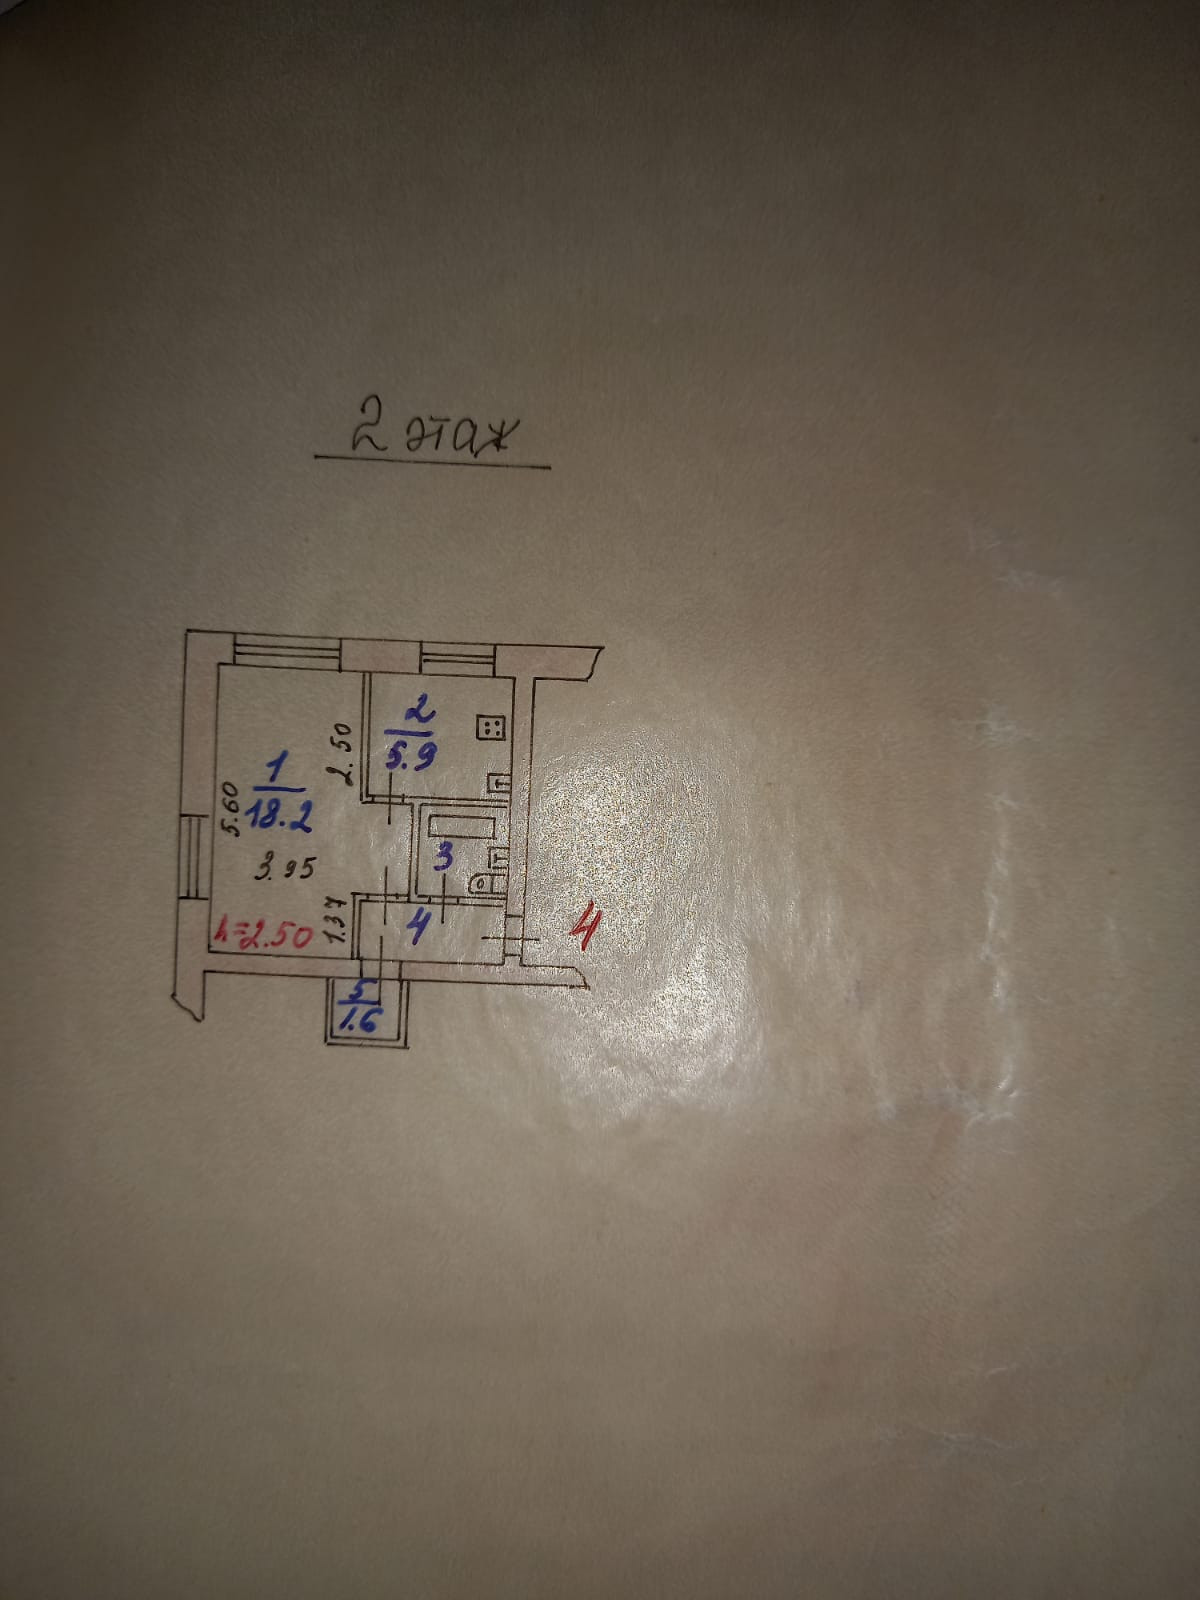 2 этаж
2
5.9
2.50
1
18.2
5.60
3.95
3
1.37
4
4
h=2.50
5
1.6